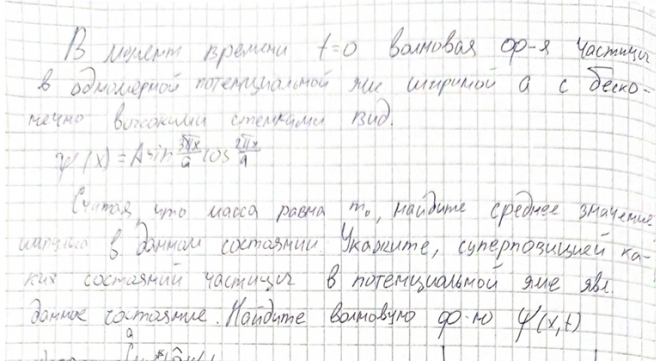 В момент времени t=0 волновая ф-я частицы
в одномерной потенциальной яме шириной a с беско-
нечно высокими стенками вид.
ψ(x) = A sin 3πx/a cos 2πx/a
Считая, что масса равна m₀, найдите среднее значение
импульса в данном состоянии Укажите, суперпозицией ка-
ких состояний частицы в потенциальной яме явл
данное состояние. Найдите волновую ф-ю ψ(x,t)